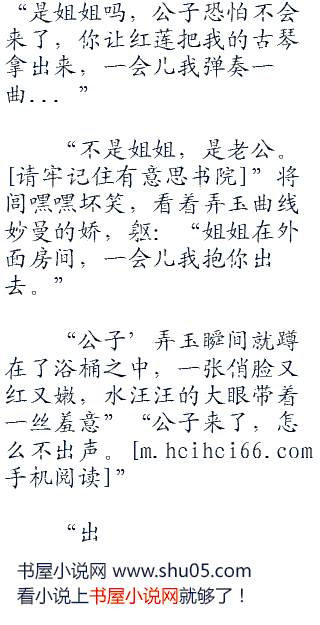 “是姐姐吗，公子恐怕不会
来了，你让红莲把我的古琴
拿出来，一会儿我弹奏一
曲... ”
“不是姐姐，是老公。
[请牢记住有意思书院]”将
闾嘿嘿坏笑，看着弄玉曲线
妙曼的娇，躯：“姐姐在外
面房间，一会儿我抱你出
去。”
“公子’弄玉瞬间就蹲
在了浴桶之中，一张俏脸又
红又嫩，水汪汪的大眼带着
一丝羞意”“公子来了，怎
么不出声。[m.hcihci66.com
手机阅读]”
“出
书屋小说网 www.shu05.com
看小说上书屋小说网就够了！